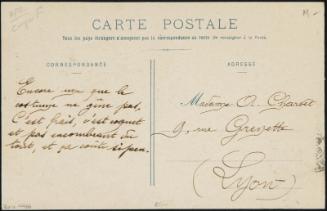 CARTE POSTALE
Tous les pays étrangers n'acceptent pas la correspondance au recto (Se renseigner à la Poste).
CORRESPONDANCE
ADRESSE
Encore un que le
costume ne gêne pas.
C'est frais, c'est coquet
et pas encombrant du
tout, et ça coûte si peu.
Madame A.
9, rue Grenette
(Lyon)